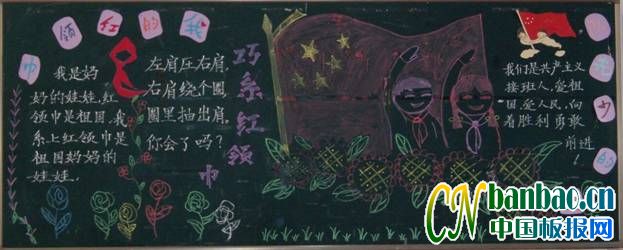 我的红领巾
我是好
好的娃娃,红
领巾是祖国,我
系上红领巾是
祖国妈妈的
娃娃.
左肩压右肩,
右肩绕个圈
圈里抽出肩,
你会了吗?
巧系红领巾
我们是共产主义
接班人,爱祖
国,爱人民,向
着胜利勇敢
前进!
CNbanbao.cn
中国板报网